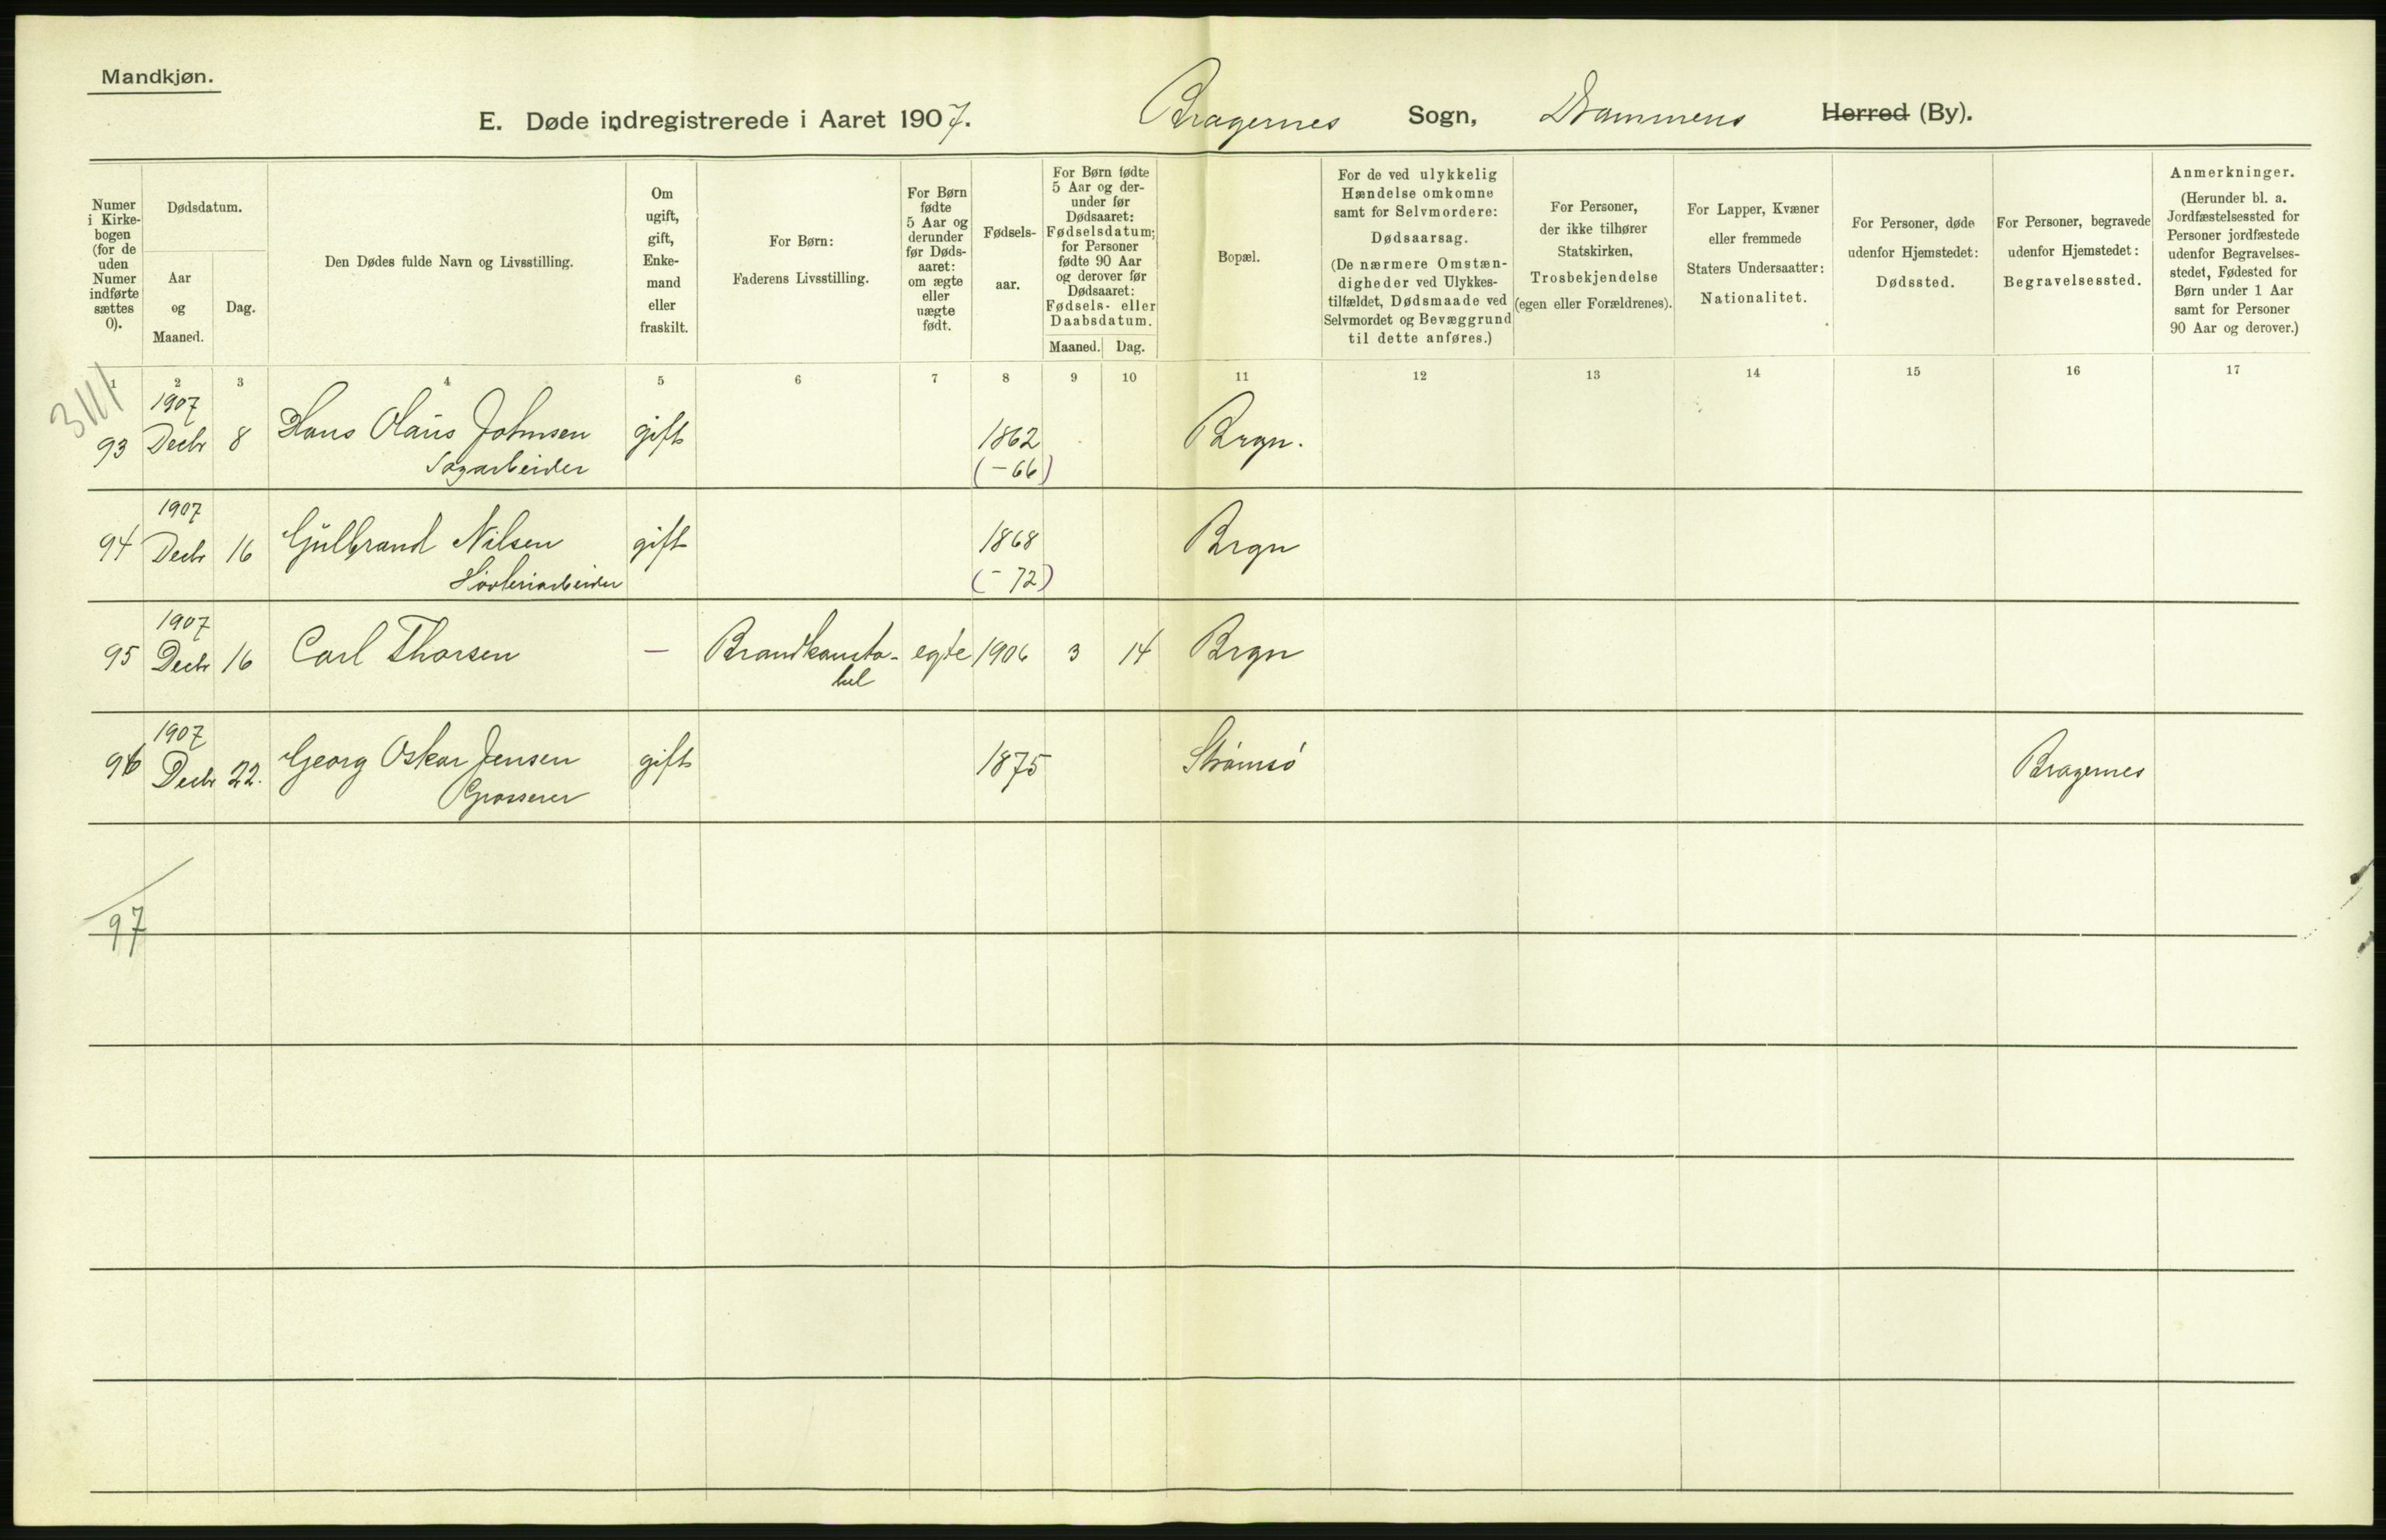 Mandkjøn.
E. Døde indregistrerede i Aaret 1907. Bragernes Sogn, Drammens Herred (By).
Numer i Kirke-bogen (for de uden Numer indførte sættes 0).
Dødsdatum.
Aar og Maaned.
Dag.
Den Dødes fulde Navn og Livsstilling.
Om ugift, gift, Enke-mand eller fraskilt.
For Børn: Faderens Livsstilling.
For Børn fødte 5 Aar og derunder før Døds-aaret: om ægte eller uægte født.
Fødsels-aar.
For Børn fødte 5 Aar og der-under før Dødsaaret: Fødselsdatum; for Personer fødte 90 Aar og derover før Dødsaaret: Fødsels- eller Daabsdatum.
Maaned. Dag.
Bopæl.
For de ved ulykkelig Hændelse omkomne samt for Selvmordere: Dødsaarsag. (De nærmere Omstæn-digheder ved Ulykkes-tilfældet, Dødsmaade ved Selvmordet og Bevæggrund til dette anføres.)
For Personer, der ikke tilhører Statskirken, Trosbekjendelse (egen eller Forældrenes).
For Lapper, Kvæner eller fremmede Staters Undersaatter: Nationalitet.
For Personer, døde udenfor Hjemstedet: Dødssted.
For Personer, begravede udenfor Hjemstedet: Begravelsessted.
Anmerkninger. (Herunder bl. a. Jordfæstelsessted for Personer jordfæstede udenfor Begravelses-stedet, Fødested for Børn under 1 Aar samt for Personer 90 Aar og derover.)
1 2 3 4 5 6 7 8 9 10 11 12 13 14 15 16 17
1907
93 Decbr 8 Hans Olaus Johnsen gift 1862 Brgn.
Sagarbeider (-66)
1907
94 Decbr 16 Gulbrand Nilsen gift 1868 Brgn
Høvleriarbeider (-72)
1907
95 Decbr 16 Carl Thorsen — Brandkonsta- egte 1906 3 14 Brgn
bel
1907
96 Decbr 22. Georg Oskar Jensen gift 1875 Strømsø Bragernes
Grosserer
97